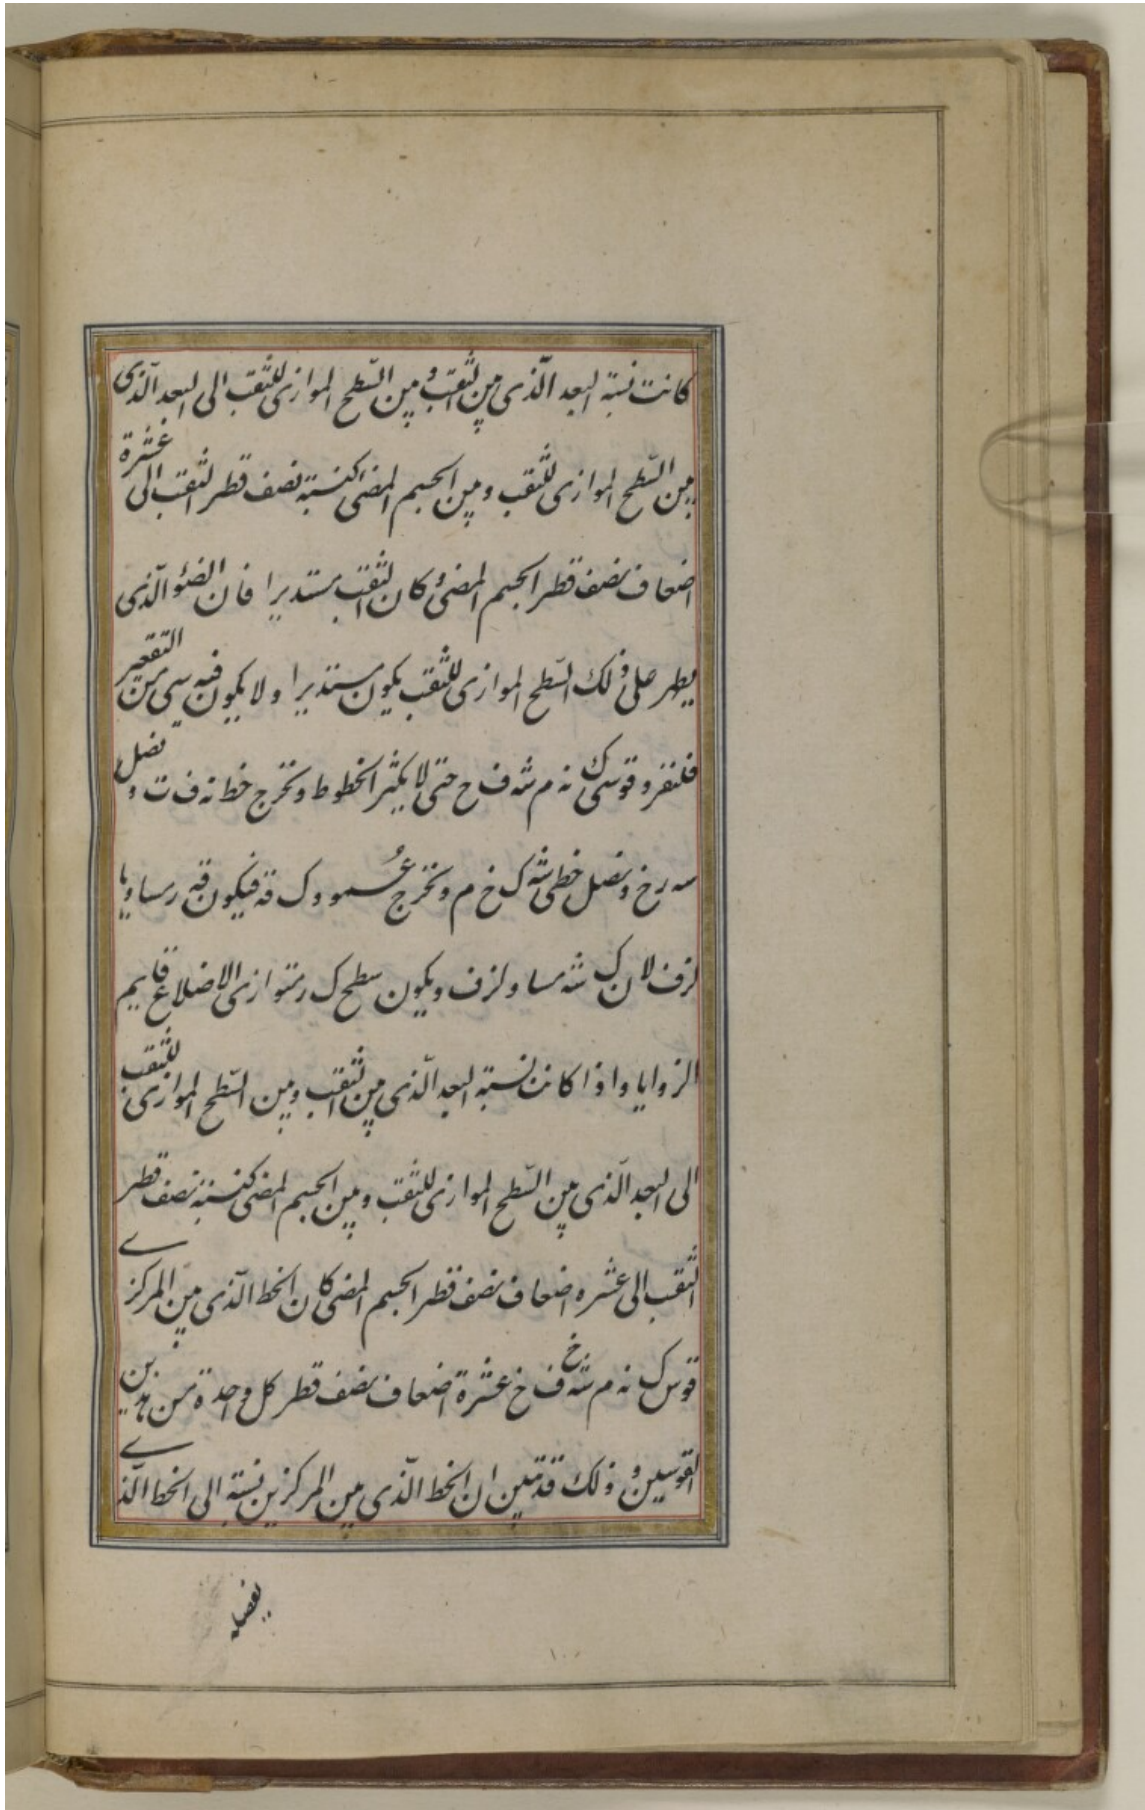 كانت نسبة البعد الّذى بين الثقب و بين السّطح الموازى للثقب الى البعد الّذى
بين السّطح الموازى للثقب و بين الجسم المضى كنسبة نصف قطر الثقب الى عشرة
اضعاف نصف قطر الجسم المضىء و كان الثقب مستديرا فان الضئو الّذى
يظهر على ذلك السّطح الموازى للثقب يكون مستديرا ولا يكون فيه شى من التقعير
فلنفرد قوسى ك نه م شه ف ح حتى لا يكثر الخطوط و نخرج خط نه ف ت و نصل
سه ر خ و نصل خطى شه ك خ م و نخرج عمود ك قه فيكون قه ر مساويا
لزف لان ك شه مساو لزف و يكون سطح ك ر متوازى الاضلاع قايم
الزوايا و اذا كانت نسبة البعد الّذى بين الثقب و بين السّطح الموازى للثقب
الى البعد الّذى بين السّطح الموازى للثقب و بين الجسم المضى كنسبة نصف قطر
الثقب الى عشره اضعاف نصف قطر الجسم المضى كان الخط الّذى بين المركزى
قوس ك نه م شه ف خ عشرة اضعاف نصف قطر كل واحدة من هذين
القوسين و ذلك قد تبين ان الخط الّذى بين المركزين نسبة الى الخط الّذى
يفصله
١٠٠